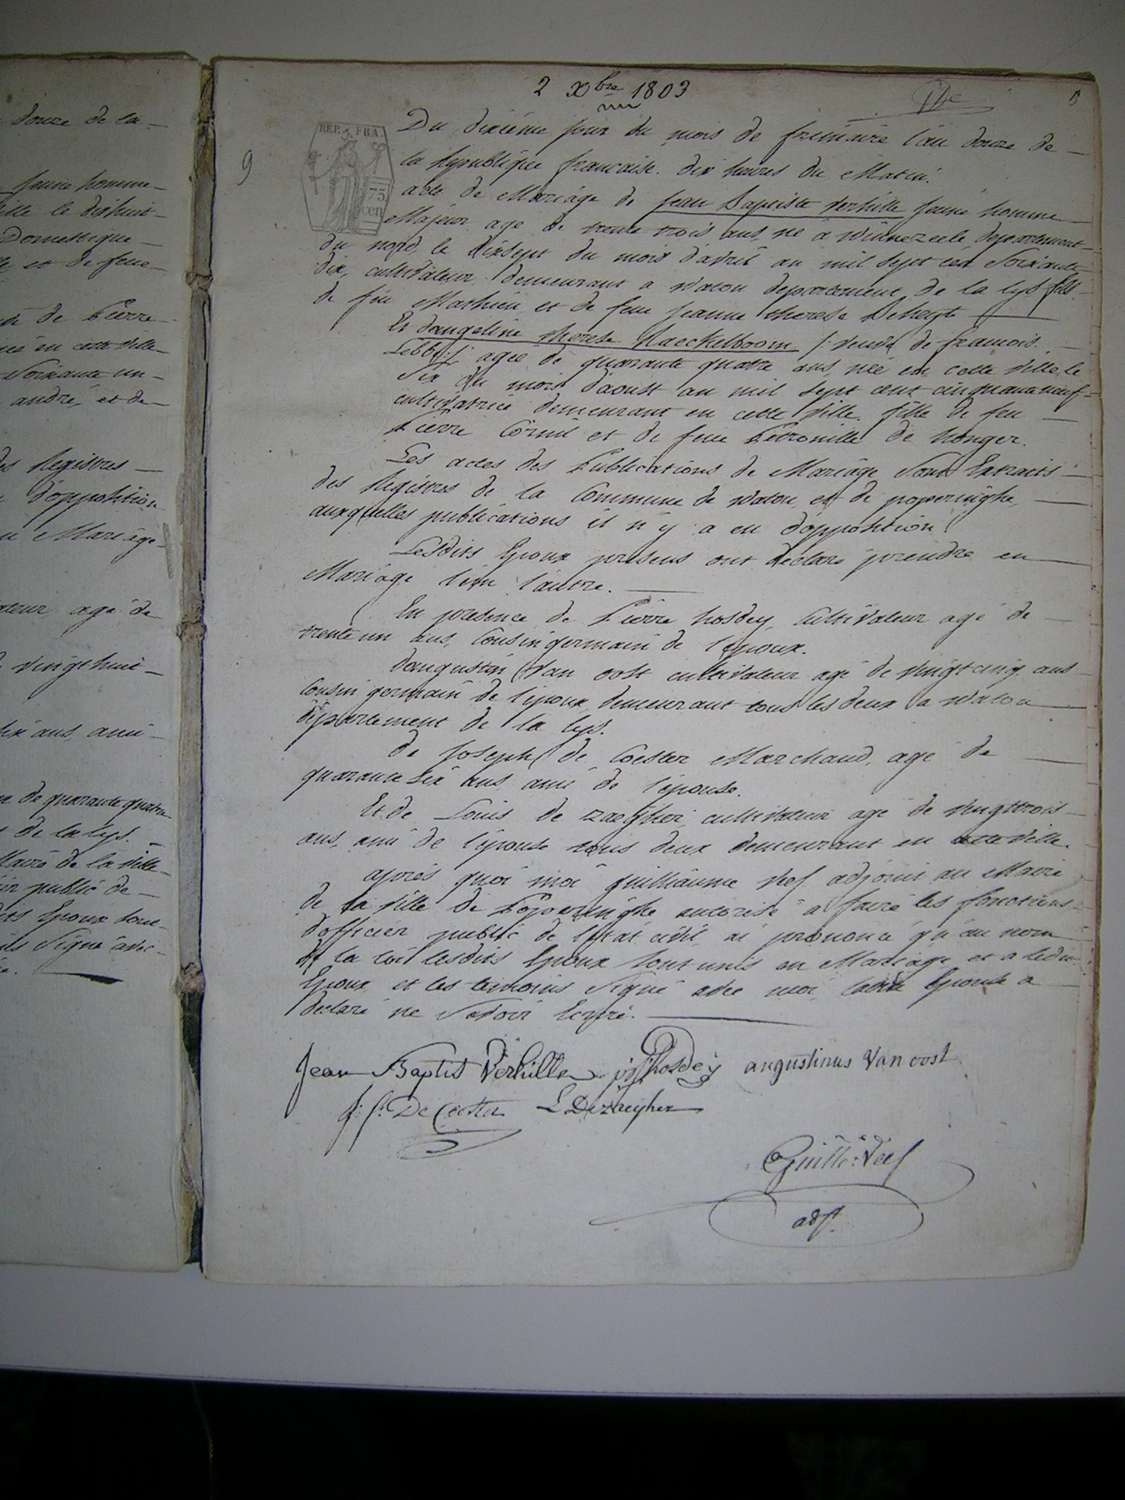 2 Xbre 1803
9
REP. FRA.
75
CEN
Du dixiéme jour du mois de frimaire l'an douze de
la Republique francaise. dix heures du Matin.
acte de Mariage de jean Baptiste Verhille jeune homme
Majeur age de trente trois ans, né a Winnezeele departement
du nord, le dixsept du mois d'avril an mil sept cen Soixante
dix, cultivateur demeurant a Watou departement de la lys fils
de feu Mathieu et de feue jeanne therese Deheegt
Et dangeline therese Haeckelboom /: veuve de francois
Lebbe :/ agée de quarante quatre ans, née en cette ville, le
Six du mois d'aoust an mil sept cent cinquante neuf
cultivatrice demeurant en cette ville, fille de feu
Pierre Cornil et de feue Petronille de honger.
Les actes des Publications de Mariage Sont Extraits
des Registres de la Commune de Watou et de poperinghe,
auxquelles publications il n'y a eu d'opposition.
Lesdits Epoux presens ont declaré prendre en
Mariage l'un l'autre.
En presence de Pierre hosdey, cultivateur agé de
trente un ans, Cousin germain de l'epoux.
d'augustin Van oost cultivateur agé de vingt cinq ans
Cousin germain de l'epoux, demeurant tous les deux a Watou
departement de la lys.
de Joseph de Coester Marchand, agé de
quarante Six ans ami de l'epouse.
Et de Louis de zaegher cultivateur agé de vingt trois
ans, ami de l'epouse tous deux demeurant en cette ville.
après quoi moi guilliaume Veef adjoint au Maire
de la ville de Poperinghe autorisé a faire les fonctions
d'officier public de l'Etat civil ai prononcé qu'au nom
de la loi lesdits Epoux Sont unis en Mariage et a ledit
Epoux et les temoins Signé avec moi ladite Epouse a
declaré ne Savoir Ecrire.
Jean Baptist Verhille p j hosdey augustinus Van oost
j: f: De Coester L Dezaegher
Guille: Veef
adjt
douze de la
jeune homme
Domestique
et de feue
de Pierre
née en cette ville
Soixante un
andré, et de
des Registres
d'opposition
Mariage
agé de
vingthuit
dix ans, ami
de quarante quatre
de la lys.
Maire de la ville
public de
dits Epoux Sont